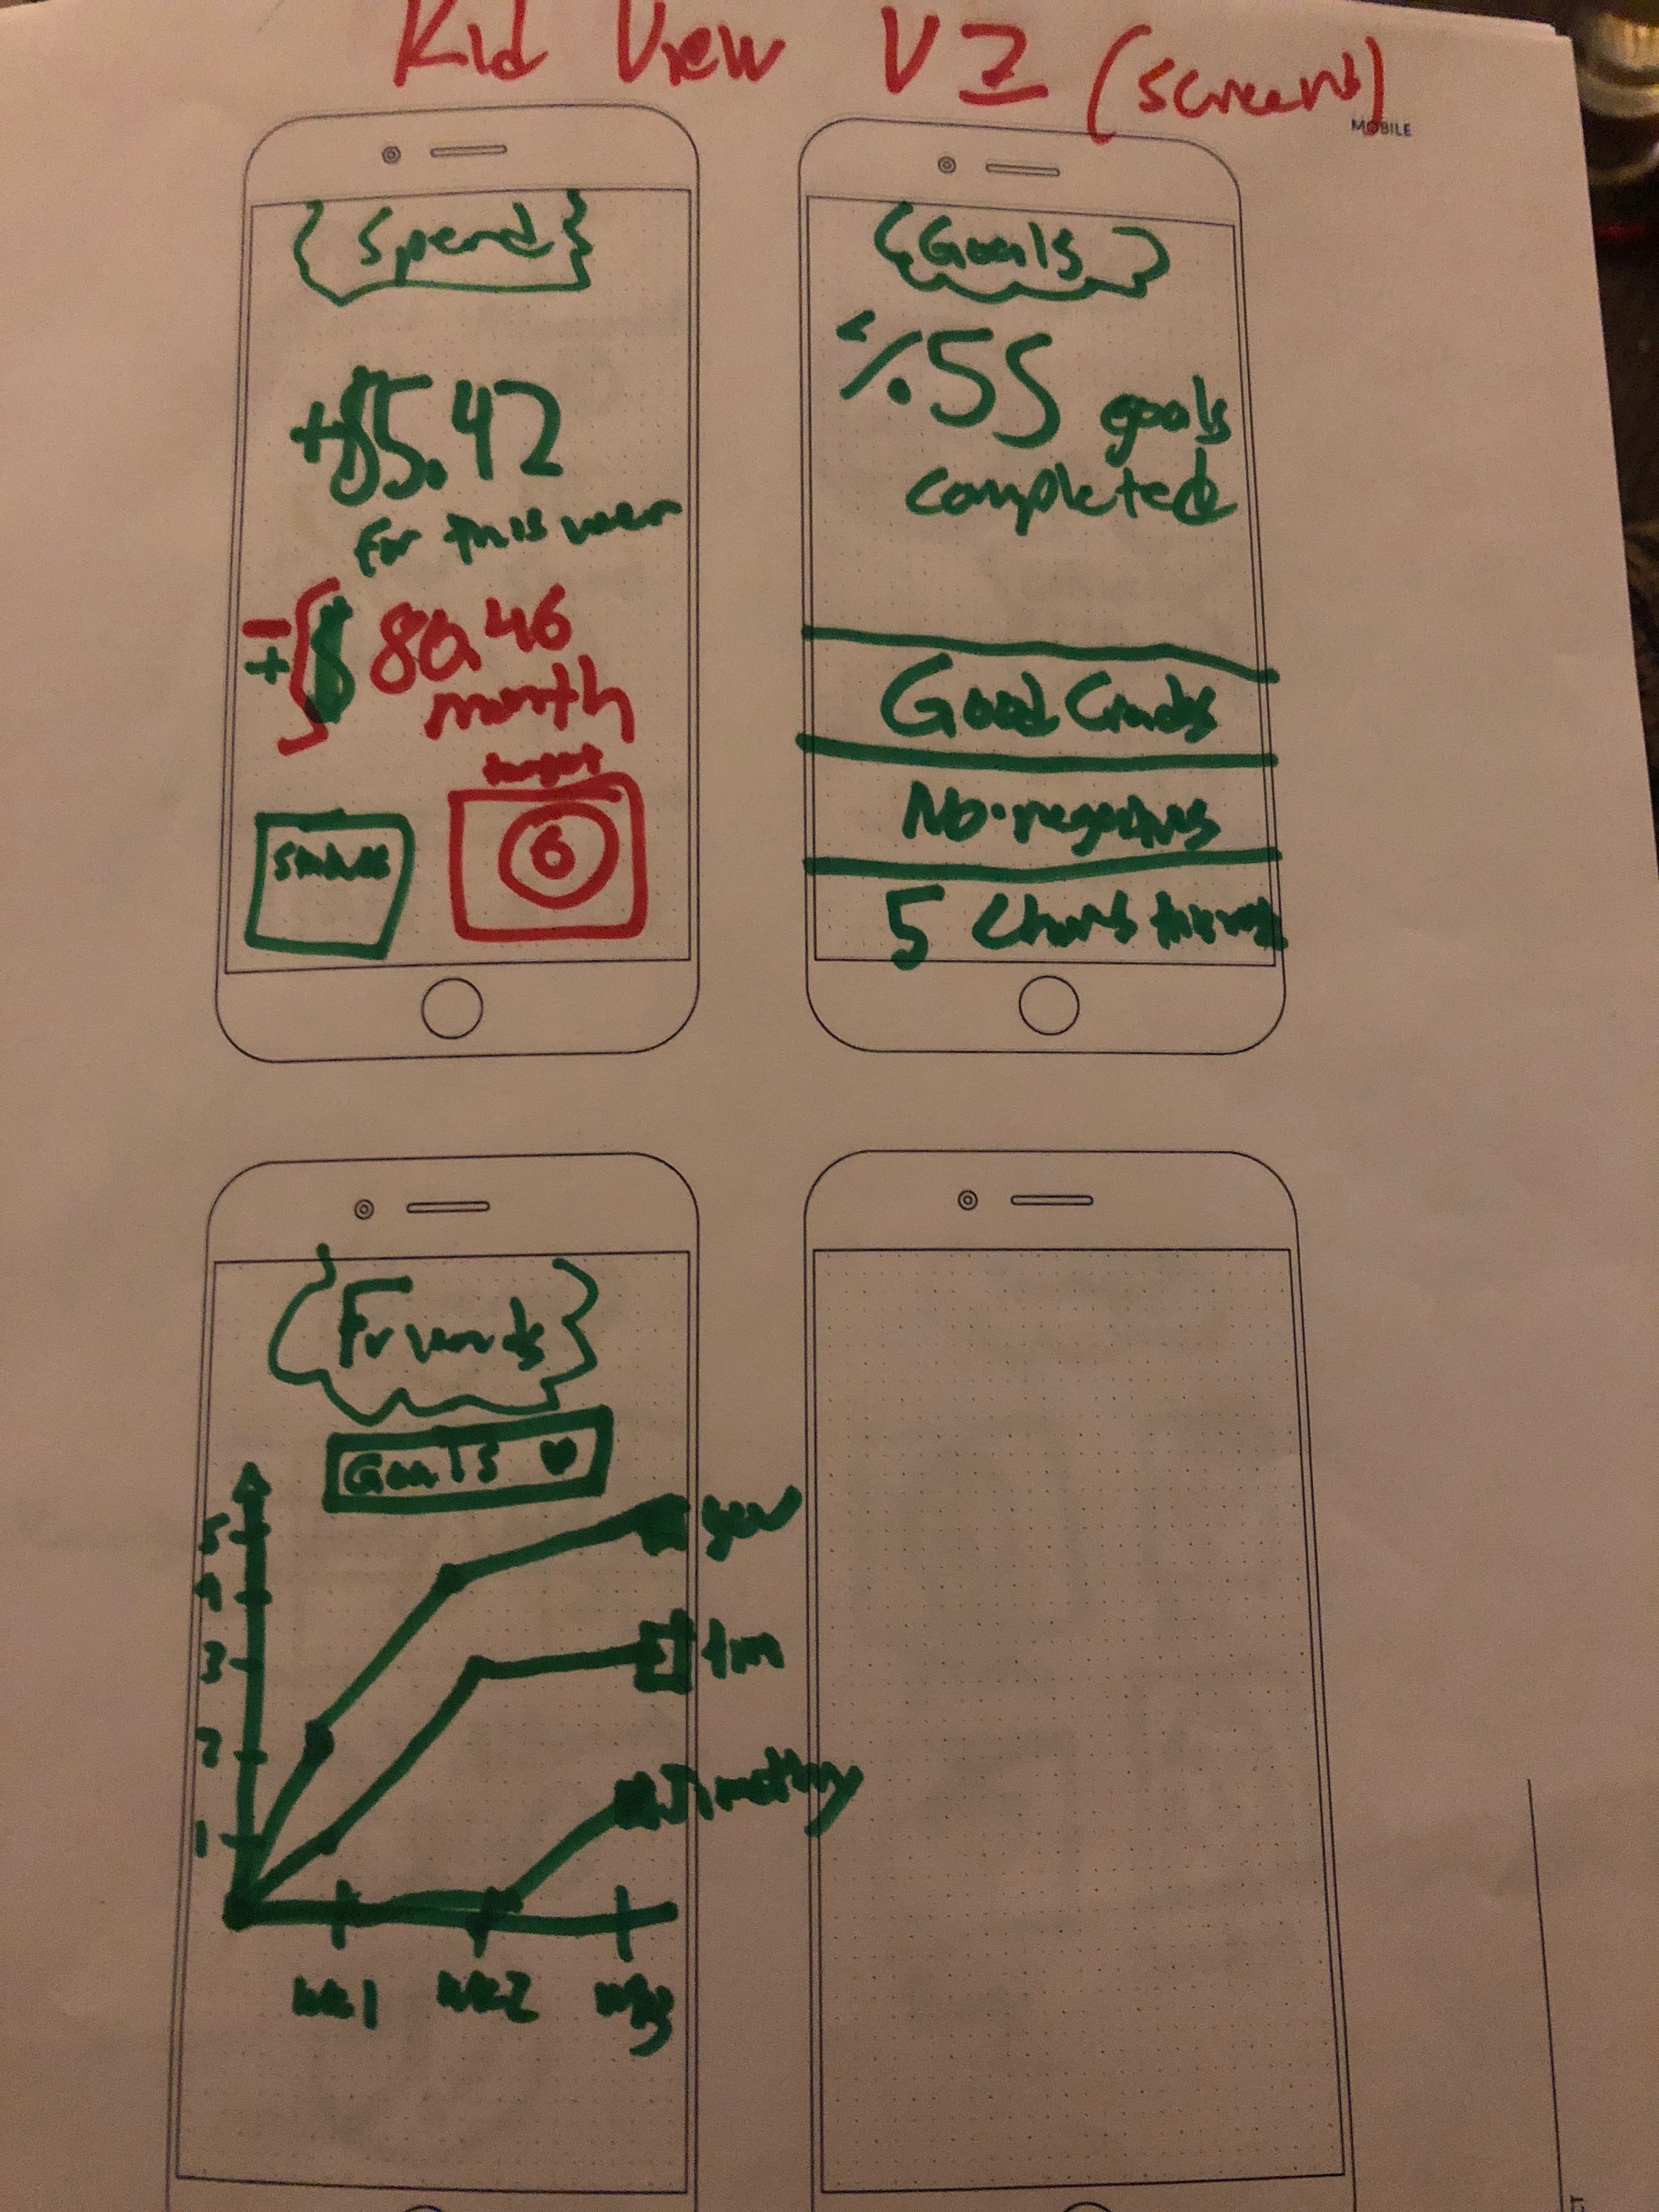 Kid View V2 (screens)
MOBILE
Spend
+$5.42
for this week
- + $ 80.46
month
target
6
Goals
%55 goals
completed
Good Grades
No negatives
5 Chors
Friends
Goals ♥
5
4
3
2
1
you
tim
Jimothy
wk1 wk2 wk3